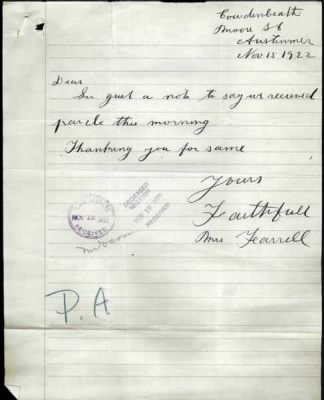 Cowdenbeath
Moore St
Austinmer
Nov 15 1922
Dear
In just a note to say we received
parcle this morning
Thanking you for same
Yours
Faithfull
Mrs Farrell
NOV 18 1922
RECEIVED
DECEASED
SECTION
NOV 18 1922
P.A